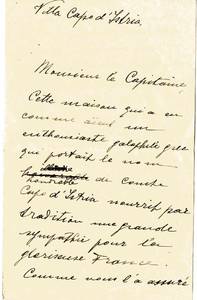 Villa Capo d'Istria.
Monsieur le Capitaine,
Cette maison qui a eu
comme aieul un
enthousiaste galophile grec
qui portait le nom
honorable de Comte
Capo d'Istria nourrit par
tradition une grande
sympathie pour la
glorieuse France.
Comme nous l'a assuré